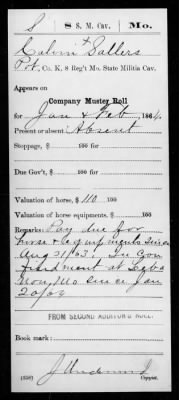 S 8 S. M. Cav. Mo.
Calvin Sallers
Pvt, Co. K, 8 Reg't Mo. State Militia Cav.
Appears on
Company Muster Roll
for Jan & Feb, 1864.
Present or absent Absent
Stoppage, $ 100 for
Due Gov't, $ 100 for
Valuation of horse, $ 110 100
Valuation of horse equipments, $ 100
Remarks: Pay due for
horse & equipments since
Aug 31/63. In Con
finement at Leba
non, Mo since Jan
20/64
FROM SECOND AUDITOR'S ROLL.
Book mark:
J Underwood
(358) Copyist.